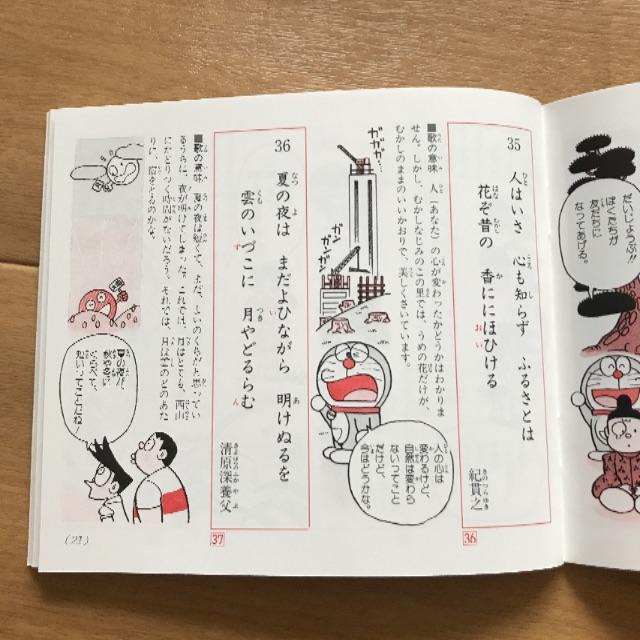 だいじょうぶ!!
ぼくたちが
友だちに
なってあげる。
35
人はいさ 心も知らず ふるさとは
花ぞ昔の 香ににほひける
紀貫之
36
■歌の意味 人(あなた)の心が変わったかどうかはわかりま
せん。しかし、むかしなじみのこの里では、うめの花だけが、
むかしのままのいいかおりで、美しくさいています。
人の心は
変わるけど、
自然は変わら
ないってこと
だけど、
今はどうかな。
ガガガ…
ガンガン
36
夏の夜は まだよひながら 明けぬるを
雲のいづこに 月やどるらむ
清原深養父
37
■歌の意味 夏の夜は短くて、まだ、よいのくちだと思ってい
るうちに、夜が明けてしまった。これでは、月はとても、西山
にたどりつく時間がないだろう。それでは、月は雲のどのあた
りに、宿をとるのかな。
夏の夜が、
秋や冬に
くらべて、
短いってことだね!
(21)